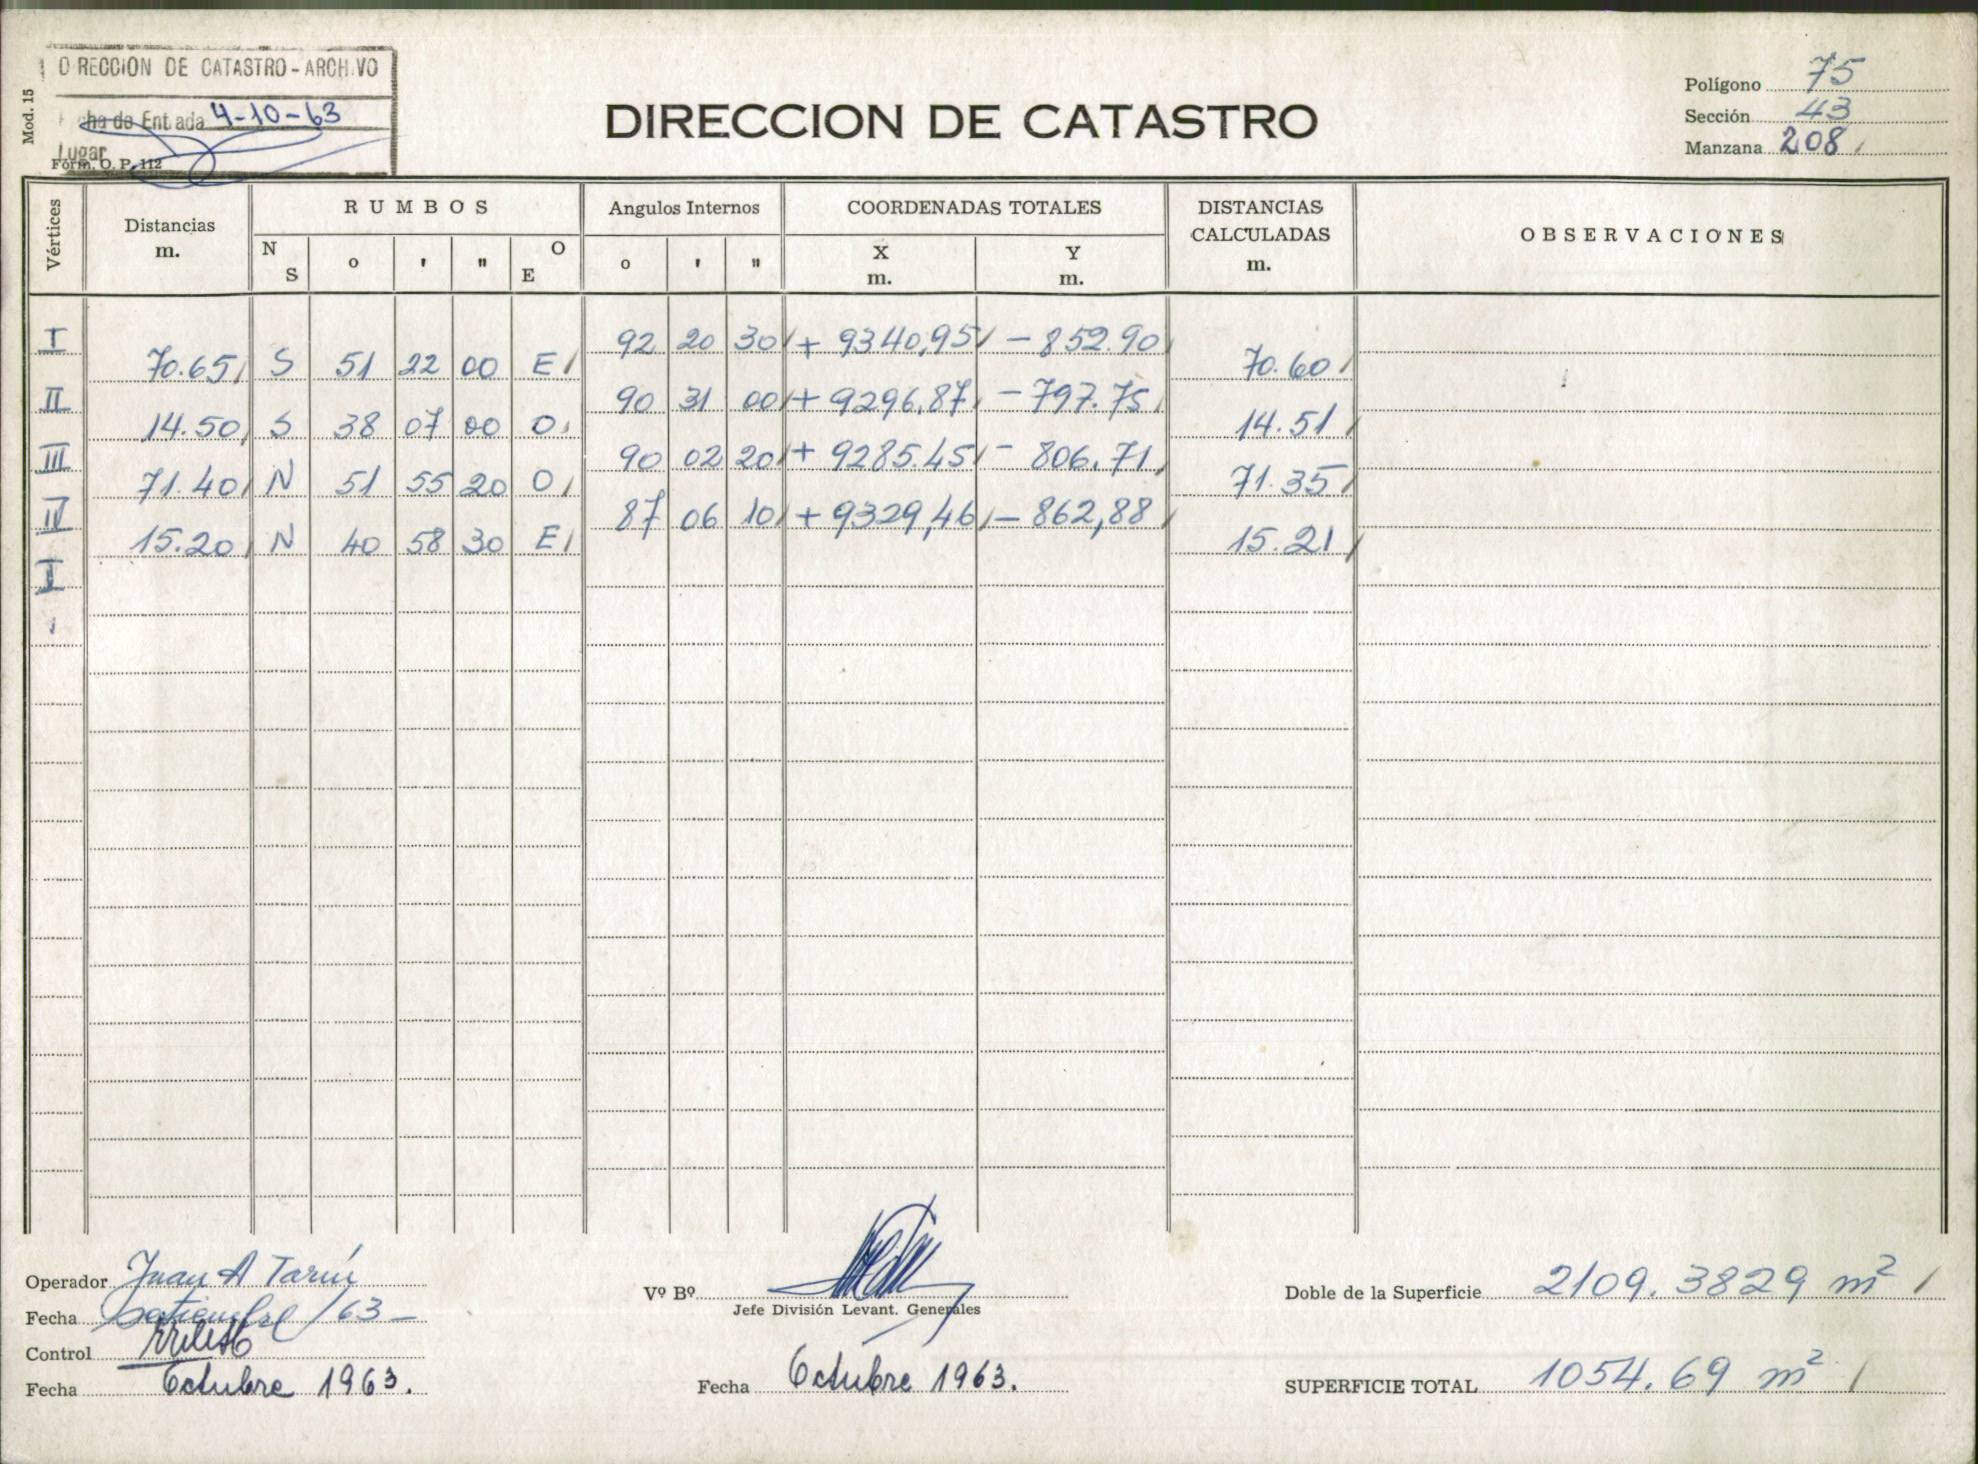 DIRECCION DE CATASTRO - ARCHIVO
Fecha de Entrada 4-10-63
Lugar
Mod. 15
Form. O. P. 112
DIRECCION DE CATASTRO
Polígono 75
Sección 43
Manzana 208
Vértices
Distancias m.
RUMBOS
N S o ' " O E
Angulos Internos
o ' "
COORDENADAS TOTALES
X m. Y m.
DISTANCIAS CALCULADAS m.
OBSERVACIONES
I 92 20 30 + 9340,95 - 852.90
70.65 S 51 22 00 E 70.60
II 90 31 00 + 9296,87 - 797.75
14.50 S 38 07 00 O 14.51
III 90 02 20 + 9285.45 - 806.71
71.40 N 51 55 20 O 71.35
IV 87 06 10 + 9329,46 - 862,88
15.20 N 40 58 30 E 15.21
I
Operador Juan A Tarín
Fecha Setiembre/63-
Control
Fecha Octubre 1963.
Vº Bº
Jefe División Levant. Generales
Fecha Octubre 1963.
Doble de la Superficie 2109.3829 m²
SUPERFICIE TOTAL 1054.69 m²